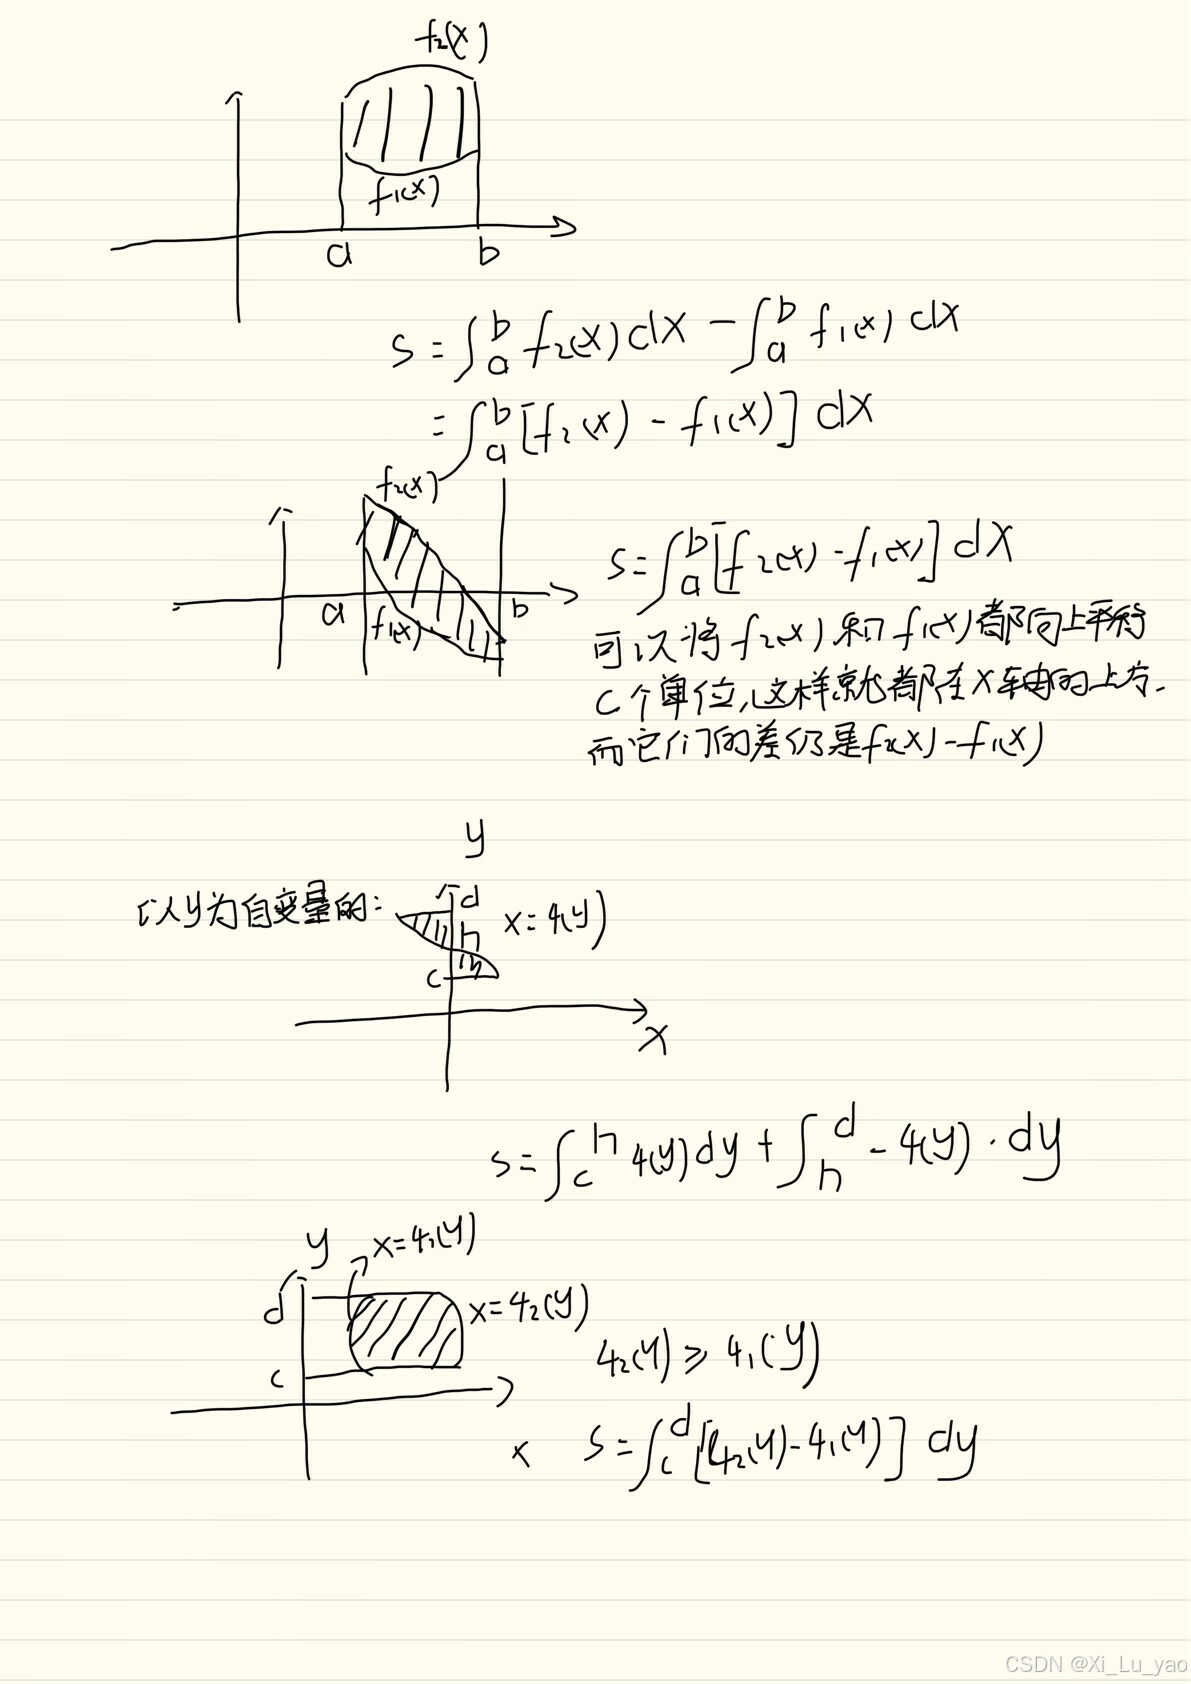 f₂(x)
f₁(x)
a b
S = ∫ₐᵇ f₂(x) dx - ∫ₐᵇ f₁(x) dx
= ∫ₐᵇ [f₂(x) - f₁(x)] dx
f₂(x)
a f₁(x) b
S = ∫ₐᵇ [f₂(x) - f₁(x)] dx
可以将 f₂(x) 和 f₁(x) 都向上平移
C个单位,这样就都在X轴的上方.
而它们的差仍是 f₂(x) - f₁(x)
y
以y为自变量的:
d
h
c
x = φ(y)
x
S = ∫_c^h φ(y) dy + ∫_h^d - φ(y) · dy
y x = φ₁(y)
d x = φ₂(y)
φ₂(y) ⩾ φ₁(y)
c
x S = ∫_c^d [φ₂(y) - φ₁(y)] dy
CSDN @Xi_Lu_yao